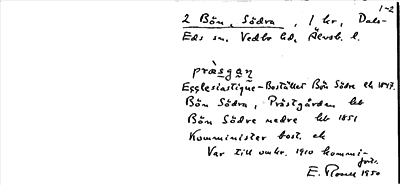 1-2
2 Bön, Södra, 1 kr, Dals-
Eds sn, Vedbo hd, Älvsb. l.
præsgaṇ
Egglesiastique-Bostället Bön Södre ek 1847.
Bön Södra, Prästgården kb
Bön Södre nedre kb 1851
Komminister bost. ek
Var till omkr. 1910 kommi-
E. Rouck 1950